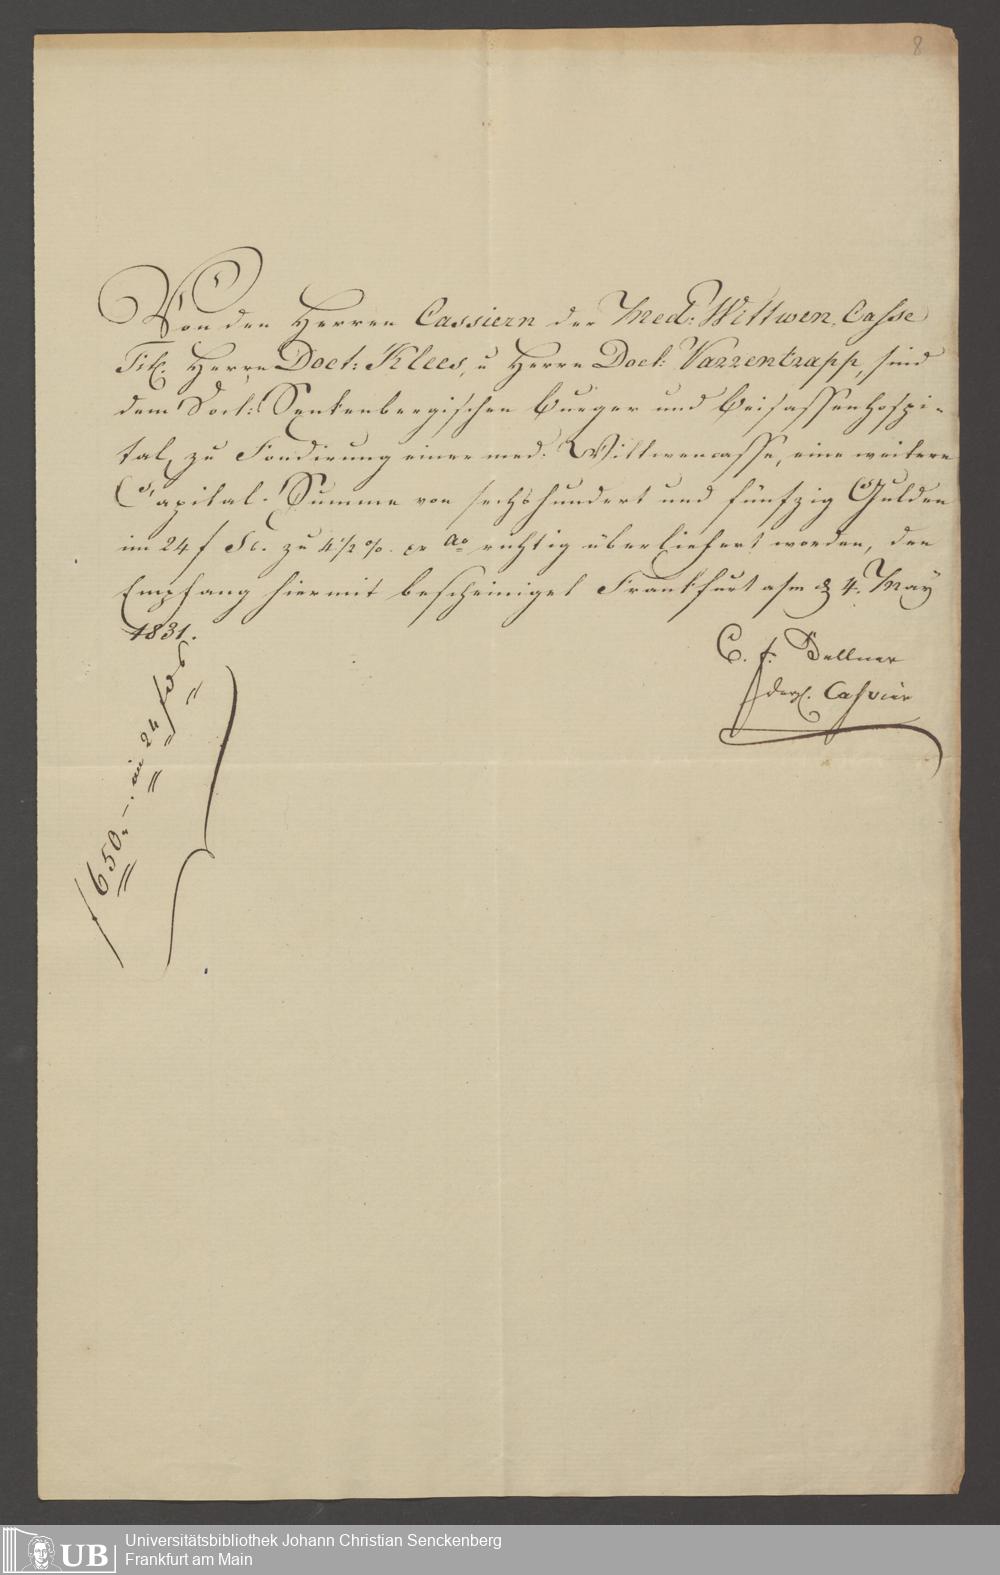 8
Von den Herren Cassiern der Med: Wittwen, Casse
Tit. Herrn Doct: Klees, u Herrn Doct: Varrentrapp, sind
dem Doct: Senkenbergischen Burger und Beisassenhospi-
tal, zu Fondirung einer med. Wittwencasse, eine weitere
Capital. Summe von sechshundert und fünfzig Gulden
im 24 f zu 4 1/2 %. pr Ao richtig überliefert worden, den
Empfang hiermit bescheiniget Frankfurt a/m d 4. May
1831.
C. F. Bellner
derz. Cassier
f 650.–. im 24 f
UB Universitätsbibliothek Johann Christian Senckenberg
Frankfurt am Main